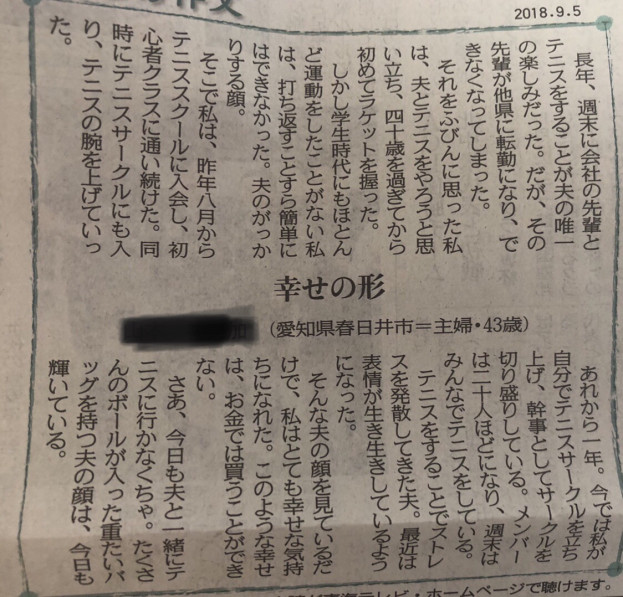 作文
2018.9.5
長年、週末に会社の先輩と
テニスをすることが夫の唯一
の楽しみだった。だが、その
先輩が他県に転勤になり、で
きなくなってしまった。
それをふびんに思った私
は、夫とテニスをやろうと思
い立ち、四十歳を過ぎてから
初めてラケットを握った。
しかし学生時代にもほとん
ど運動をしたことがない私
は、打ち返すことすら簡単に
はできなかった。夫のがっか
りする顔。
そこで私は、昨年八月から
テニススクールに入会し、初
心者クラスに通い続けた。同
時にテニスサークルにも入
り、テニスの腕を上げていっ
た。
幸せの形
(愛知県春日井市=主婦・43歳)
あれから一年。今では私が
自分でテニスサークルを立ち
上げ、幹事としてサークルを
切り盛りしている。メンバー
は二十人ほどになり、週末は
みんなでテニスをしている。
テニスをすることでストレ
スを発散してきた夫。最近は
表情が生き生きしているよう
になった。
そんな夫の顔を見ているだ
けで、私はとても幸せな気持
ちになれた。このような幸せ
は、お金では買うことができ
ない。
さあ、今日も夫と一緒にテ
ニスに行かなくちゃ。たくさ
んのボールが入った重たいバ
ッグを持つ夫の顔は、今日も
輝いている。
東海テレビ・ホームページで聴けます。